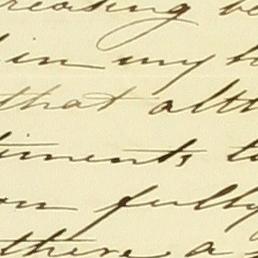 reasing be
in my
that alth
timents to
on fully
there a